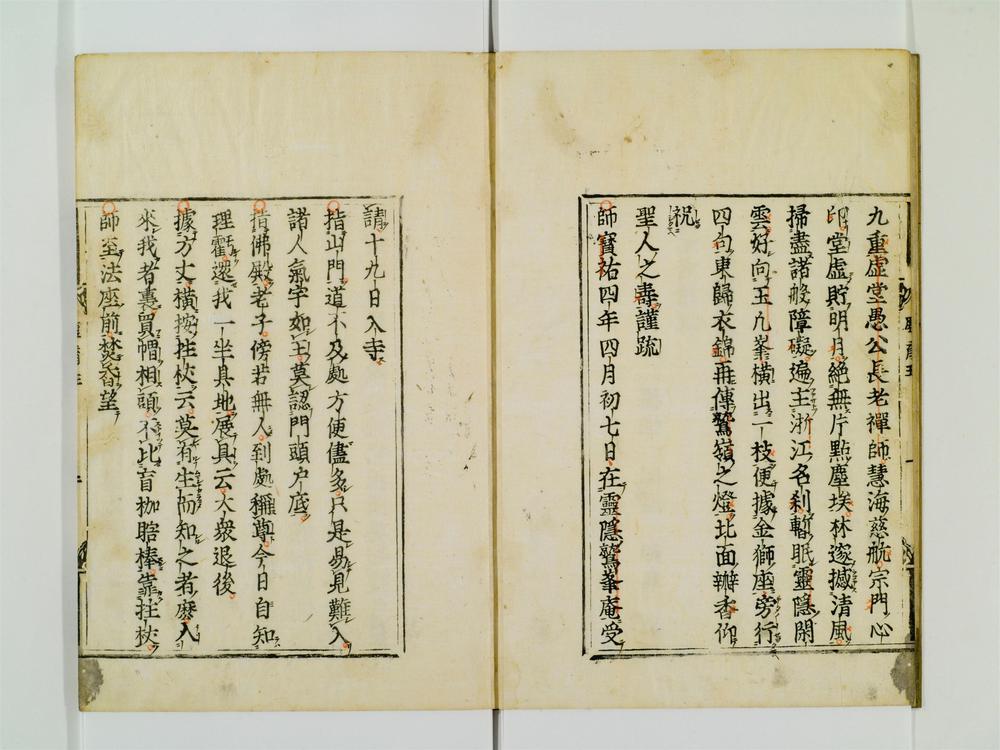 九重虛堂愚公長老禪師慧海慈航宗門心
印堂虛貯明月絕無片點塵埃林邃撼清風
掃盡諸般障礙遍主浙江名刹暫眠靈隱閑
雲好向玉几峯橫出一枝便據金獅座旁行
四句東歸衣錦再傳鷲嶺之燈北面瓣香仰
祝
聖人之壽謹疏
師寶祐四年四月初七日在靈隱鷲峯庵受
請十九日入寺
指山門道不及處方便儘多只是易見難入
諸人氣宇如王莫認門頭戶底
指佛殿老子傍若無人到處稱尊今日自知
理虧還我一坐具地展具云大衆退後
據方丈橫按拄杖云莫有生而知之者麽入
來我者裏賀帽相頭不比盲枷瞎棒靠拄杖
師至法座前焚香望